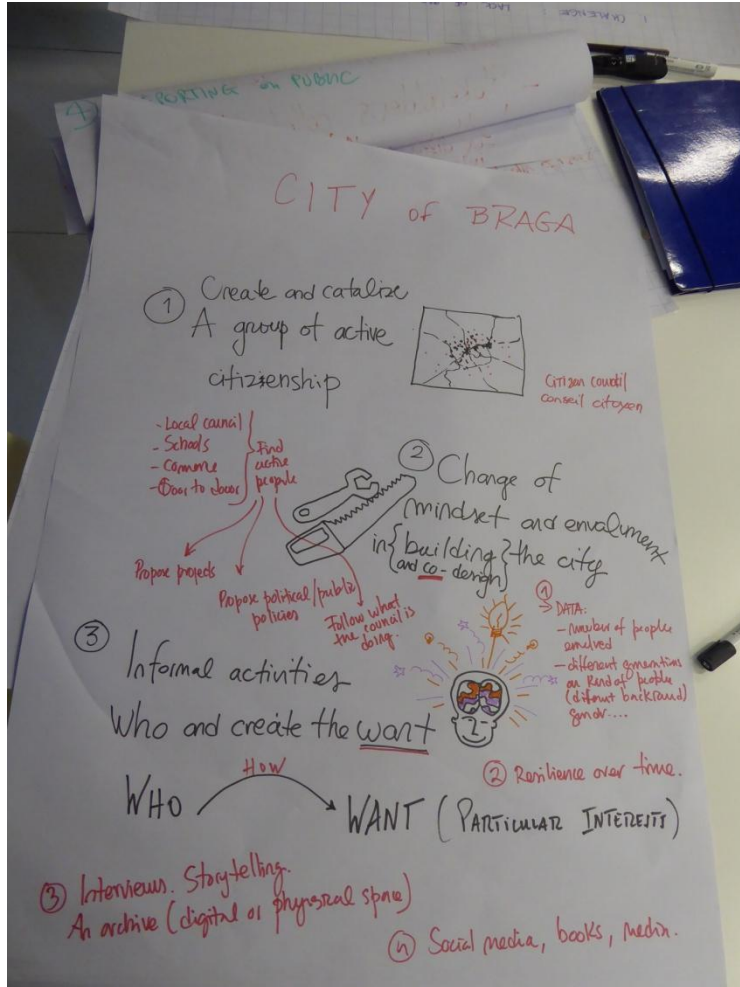 CHALENGE
LACK OF
PORTING on PUBLIC
CITY of BRAGA
① Create and catalize
A group of active
citizienship
Citizen council
conseil citoyen
- Local council
- Schools
- Commerce
- Door to door
Find
active
people
Propose projects
Propose political/public
policies
Follow what
the council is
doing.
② Change of
mindset and envolument
in {building} the city
{and co-design}
① DATA:
- number of people
envolved
- different generations
or kind of people
(difirent background)
gender....
③ Informal activities
Who and create the want
② Resilience over time.
HOW
WHO
WANT (PARTICULAR INTERESTS)
③ Interviews. Storytelling.
An archive (digital or physical space)
④ Social media, books, media.